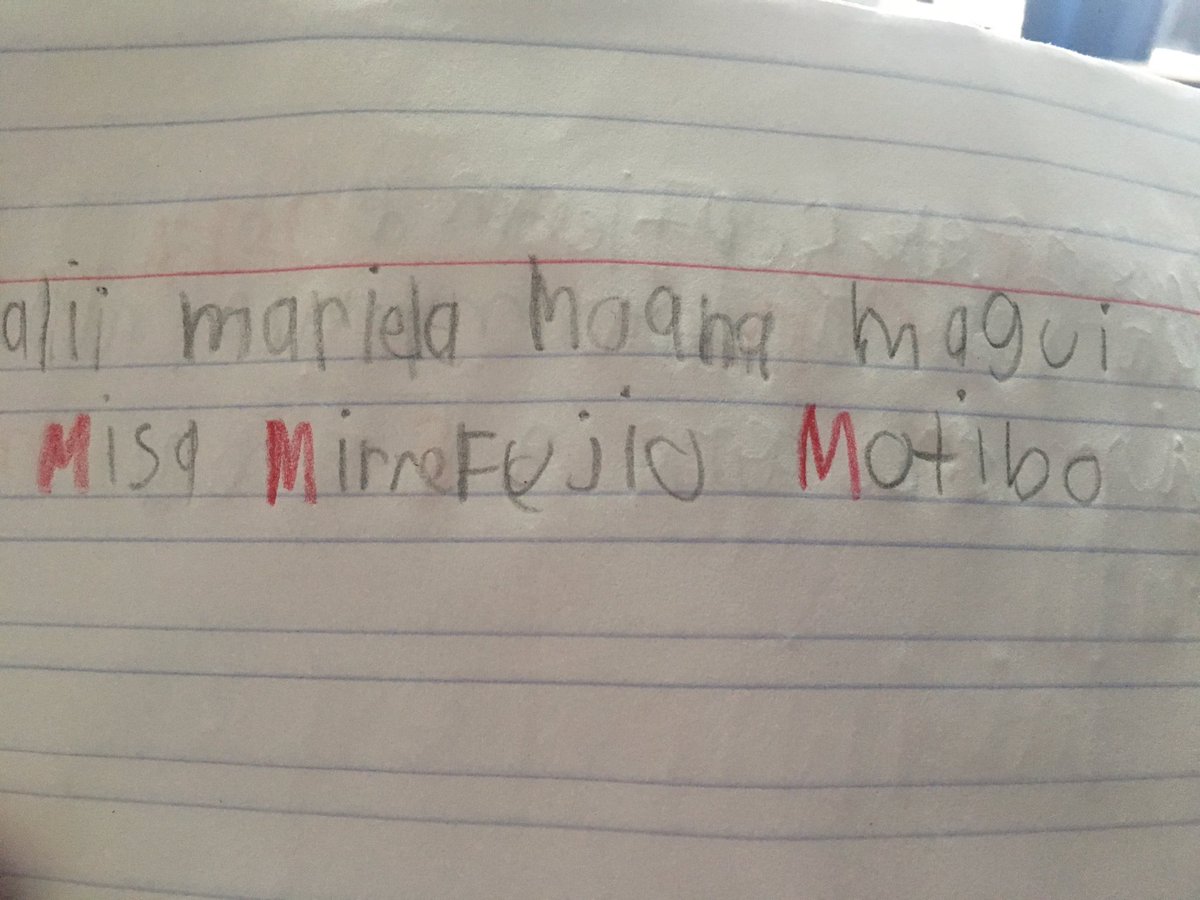 alii mariela moana magui
Misa Mirrefejio Motibo